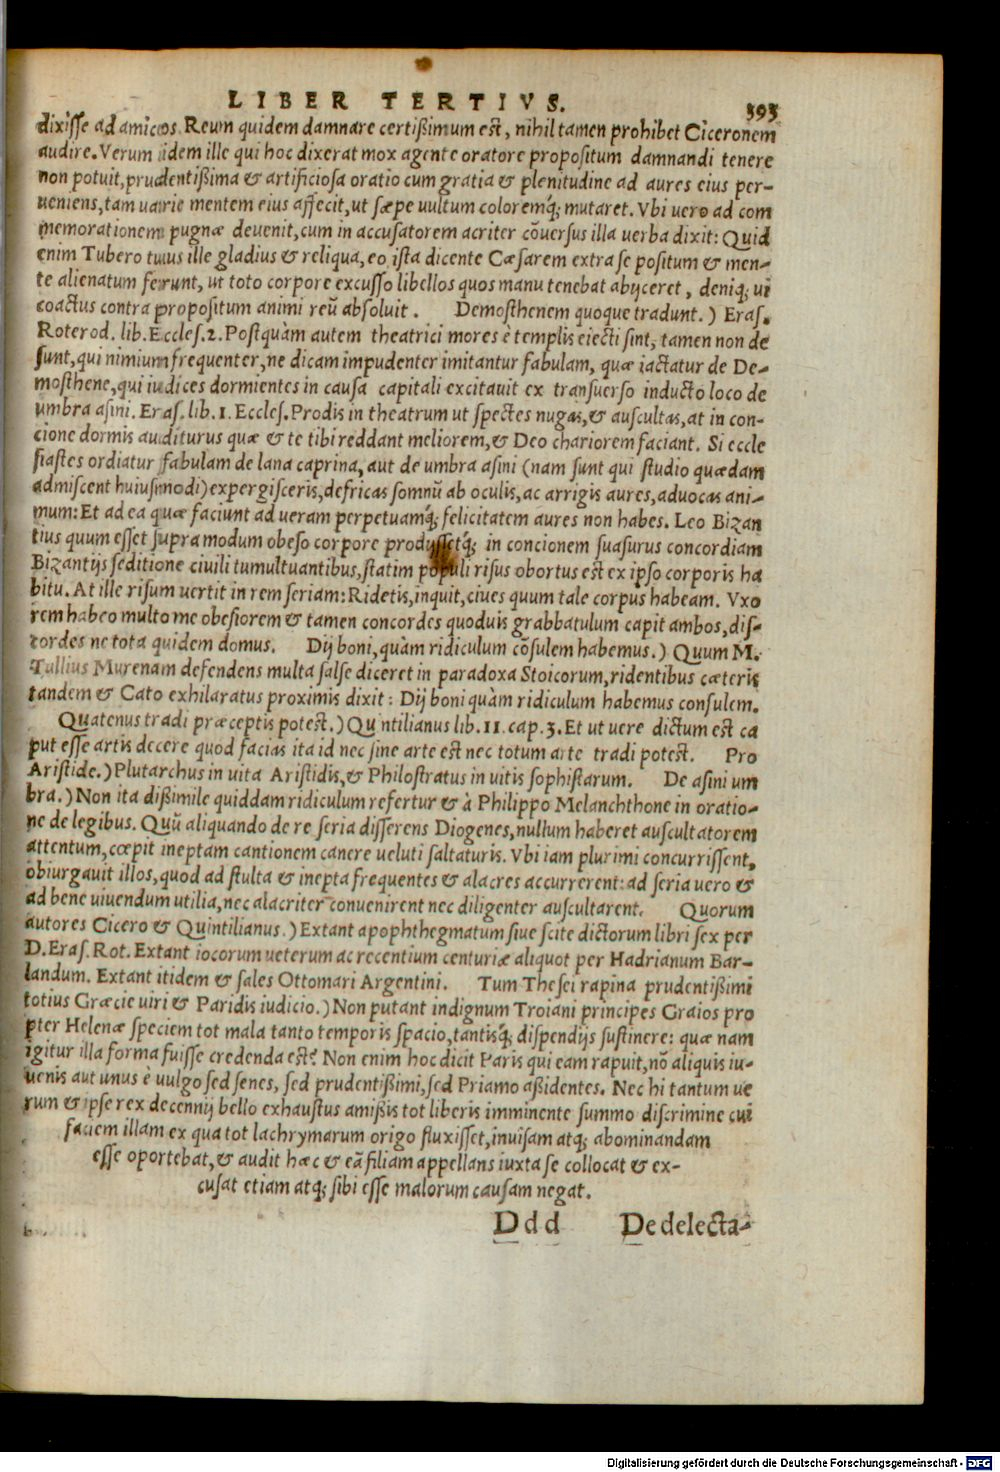 LIBER TERTIVS. 393
dixiſſe ad amicos. Reum quidem damnare certißimum eſt, nihil tamen prohibet Ciceronem
audire. Verum idem ille qui hoc dixerat mox agente oratore propoſitum damnandi tenere
non potuit, prudentißima & artificioſa oratio cum gratia & plenitudine ad aures eius per-
ueniens, tam uarie mentem eius affecit, ut ſæpe uultum coloremq́; mutaret. Vbi uero ad com
memorationem pugnæ deuenit, cum in accuſatorem acriter cõuerſus illa uerba dixit: Quid
enim Tubero tuus ille gladius & reliqua, eo iſta dicente Cæſarem extra ſe poſitum & men-
te alienatum ferunt, ut toto corpore excuſſo libellos quos manu tenebat abijceret, deniq; ui
coactus contra propoſitum animi reũ abſoluit. Demoſthenem quoque tradunt.) Eraſ.
Roterod. lib. Eccleſ. 2. Poſtquàm autem theatrici mores è templis eiecti ſint, tamen non de
ſunt, qui nimium frequenter, ne dicam impudenter imitantur fabulam, quæ iactatur de De-
moſthene, qui iudices dormientes in cauſa capitali excitauit ex tranſuerſo inducto loco de
umbra aſini. Eraſ. lib. 1. Eccleſ. Prodis in theatrum ut ſpectes nugas, & auſcultas, at in con-
cione dormis auditurus quæ & te tibi reddant meliorem, & Deo chariorem faciant. Si eccle
ſiaſtes ordiatur fabulam de lana caprina, aut de umbra aſini (nam ſunt qui ſtudio quædam
admiſcent huiuſmodi) expergiſceris, defricas ſomnũ ab oculis, ac arrigis aures, aduocas ani-
mum: Et ad ea quæ faciunt ad ueram perpetuamq́; felicitatem aures non habes. Leo Bizan
tius quum eſſet ſupra modum obeſo corpore prodijſſetq́; in concionem ſuaſurus concordiam
Bizantijs ſeditione ciuili tumultuantibus, ſtatim populi riſus obortus eſt ex ipſo corporis ha
bitu. At ille riſum uertit in rem ſeriam: Ridetis, inquit, ciues quum tale corpus habeam. Vxo
rem habeo multo me obeſiorem & tamen concordes quoduis grabbatulum capit ambos, diſ-
cordes ne tota quidem domus. Dij boni, quàm ridiculum cõſulem habemus.) Quum M.
Tullius Murenam defendens multa ſalſe diceret in paradoxa Stoicorum, ridentibus cæteris
tandem & Cato exhilaratus proximis dixit: Dij boni quàm ridiculum habemus conſulem.
Quatenus tradi præceptis poteſt.) Quintilianus lib. 11. cap. 3. Et ut uere dictum eſt ca
put eſſe artis decere quod facias ita id nec ſine arte eſt nec totum arte tradi poteſt. Pro
Ariſtide.) Plutarchus in uita Ariſtidis, & Philoſtratus in uitis ſophiſtarum. De aſini um
bra.) Non ita dißimile quiddam ridiculum refertur & à Philippo Melanchthone in oratio-
ne de legibus. Quũ aliquando de re ſeria diſſerens Diogenes, nullum haberet auſcultatorem
attentum, cœpit ineptam cantionem canere ueluti ſaltaturis. Vbi iam plurimi concurriſſent,
obiurgauit illos, quod ad ſtulta & inepta frequentes & alacres accurrerent: ad ſeria uero &
ad bene uiuendum utilia, nec alacriter conuenirent nec diligenter auſcultarent. Quorum
autores Cicero & Quintilianus.) Extant apophthegmatum ſiue ſcite dictorum libri ſex per
D. Eraſ. Rot. Extant iocorum ueterum ac recentium centuriæ aliquot per Hadrianum Bar-
landum. Extant itidem & ſales Ottomari Argentini. Tum Theſei rapina prudentißimi
totius Græcie uiri & Paridis iudicio.) Non putant indignum Troiani principes Graios pro
pter Helenæ ſpeciem tot mala tanto temporis ſpacio, tantisq́; diſpendijs ſuſtinere: quæ nam
igitur illa forma fuiſſe credenda eſt? Non enim hoc dicit Paris qui eam rapuit, nõ aliquis iu-
uenis aut unus è uulgo ſed ſenes, ſed prudentißimi, ſed Priamo aßidentes. Nec hi tantum ue
rum & ipſe rex decennij bello exhauſtus amißis tot liberis imminente ſummo diſcrimine cui
faciem illam ex qua tot lachrymarum origo fluxiſſet, inuiſam atq; abominandam
eſſe oportebat, & audit hæc & eã filiam appellans iuxta ſe collocat & ex-
cuſat etiam atq; ſibi eſſe malorum cauſam negat.
Ddd De delecta-
Digitalisierung gefördert durch die Deutsche Forschungsgemeinschaft - DFG